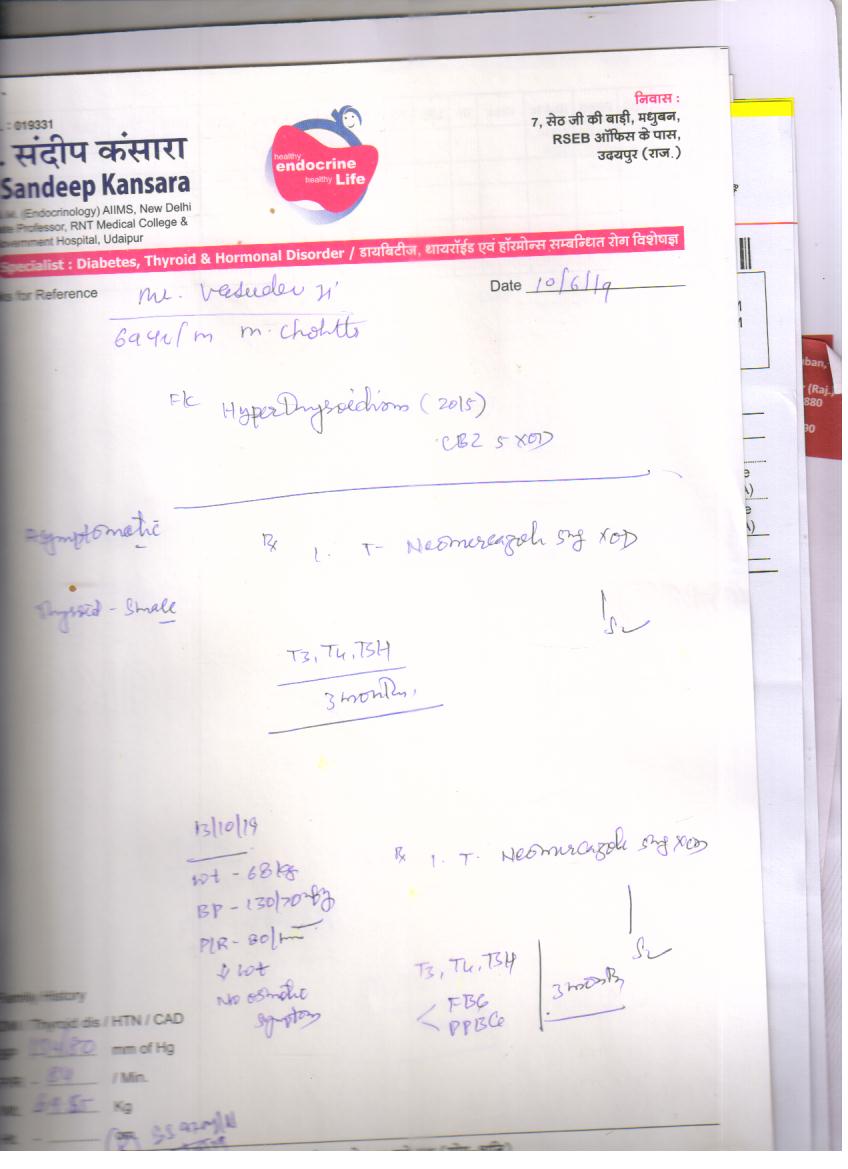 : 019331
. संदीप कंसारा
Sandeep Kansara
(Endocrinology) AIIMS, New Delhi
Professor, RNT Medical College &
Hospital, Udaipur
healthy
endocrine
healthy Life
निवास :
7, सेठ जी की बाड़ी, मधुबन,
RSEB ऑफिस के पास,
उदयपुर (राज.)
Specialist : Diabetes, Thyroid & Hormonal Disorder / डायबिटीज, थायरॉईड एवं हॉरमोन्स सम्बन्धित रोग विशेषज्ञ
for Reference
Mr. Vasudev Ji
Date 10/6/19
69 yr/m
F/c HyperThyroidism (2015)
CBZ 5 XOD
Asymptomatic
Rx 1. T- Neomercazole 5mg XOD
Thyroid - Small
T3, T4, TSH
3 months
13/10/19
wt - 68 kg
BP - 130/70 mmHg
P/R - 80/m
↓ wt
No osmotic
symptom
Rx 1. T- Neomercazole 5mg XOD
T3, T4, TSH
FBG
PPBG
3 months
History
Thyroid dis / HTN / CAD
mm of Hg
84 / Min.
Kg
ban,
(Raj.)
880
90